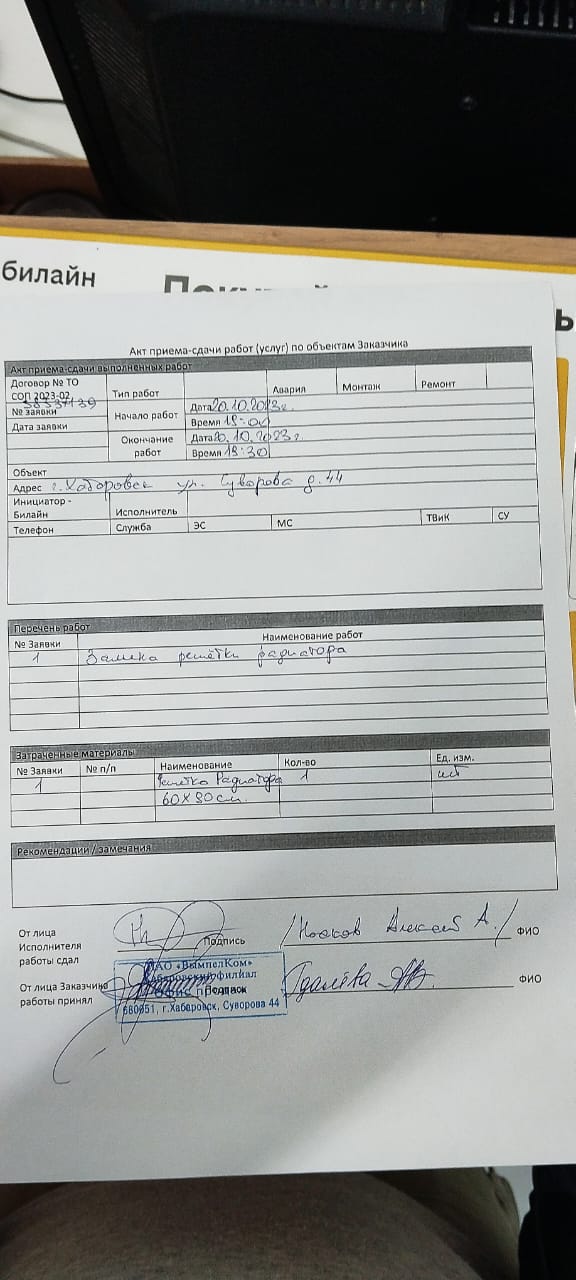 билайн
Акт приема-сдачи работ (услуг) по объектам Заказчика
Акт приема-сдачи выполненных работ
Договор № ТО СОП 2023-02 Тип работ Авария Монтаж Ремонт
№ заявки Начало работ Дата 20.10.2023г.
Дата заявки Время
Окончание работ Дата 20.10.2023г
Время 18:30
Объект
Адрес г. Хабаровск ул. Суворова д. 44
Инициатор - Билайн Исполнитель
Телефон Служба ЭС МС ТВиК СУ
Перечень работ
№ Заявки Наименование работ
1 Замена решётки радиатора
Затраченные материалы
№ Заявки № п/п Наименование Кол-во Ед. изм.
1 Решётка Радиатора 1 шт
см.
Рекомендации / замечания
От лица Исполнителя работы сдал Подпись Алексей А./ ФИО
От лица Заказчика работы принял Подпись ФИО
ПАО «ВымпелКом»
Хабаровский филиал
Офис продаж
680051, г.Хабаровск, Суворова 44